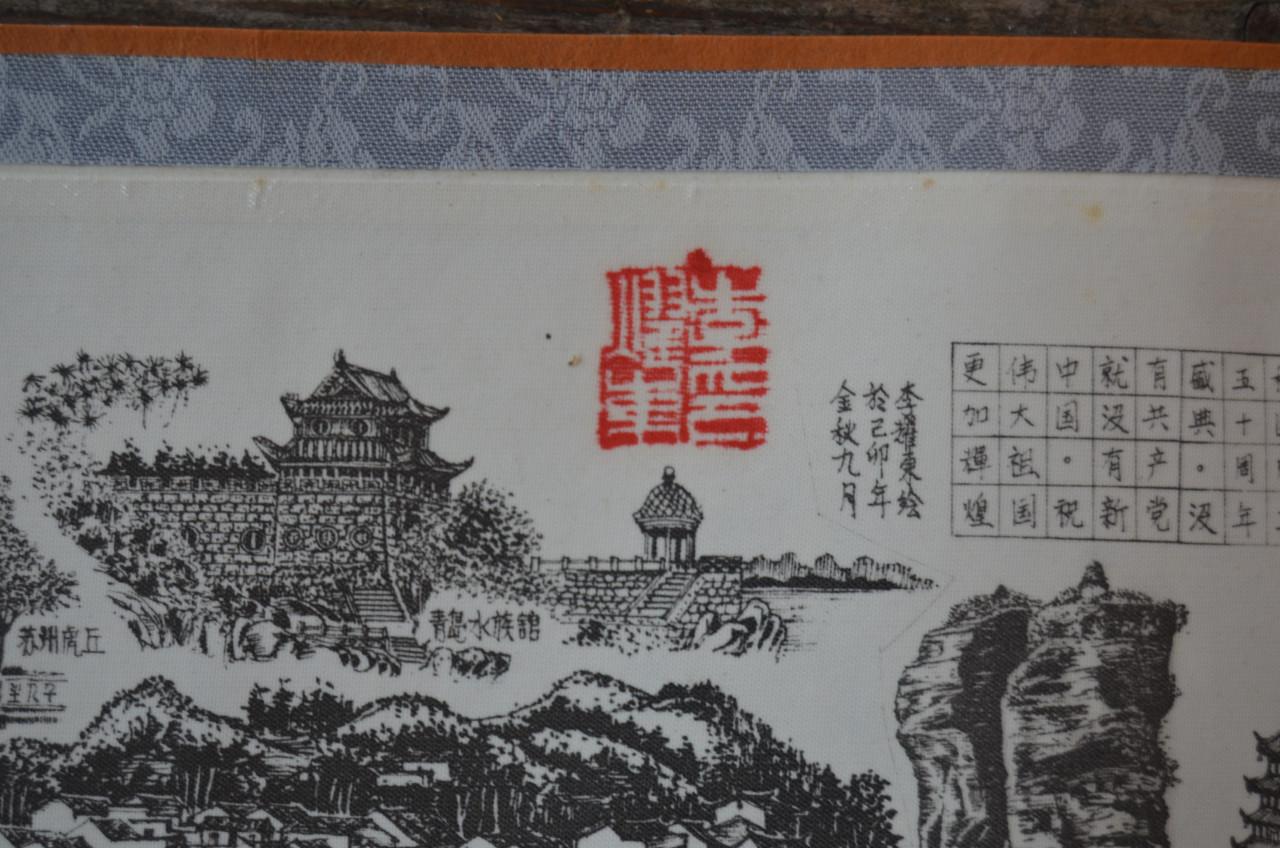 五十周年
盛典。没
有共产党
就没有新
中国。祝
伟大祖国
更加輝煌
李耀東绘
於己卯年
金秋九月
青岛水族舘
苏州虎丘